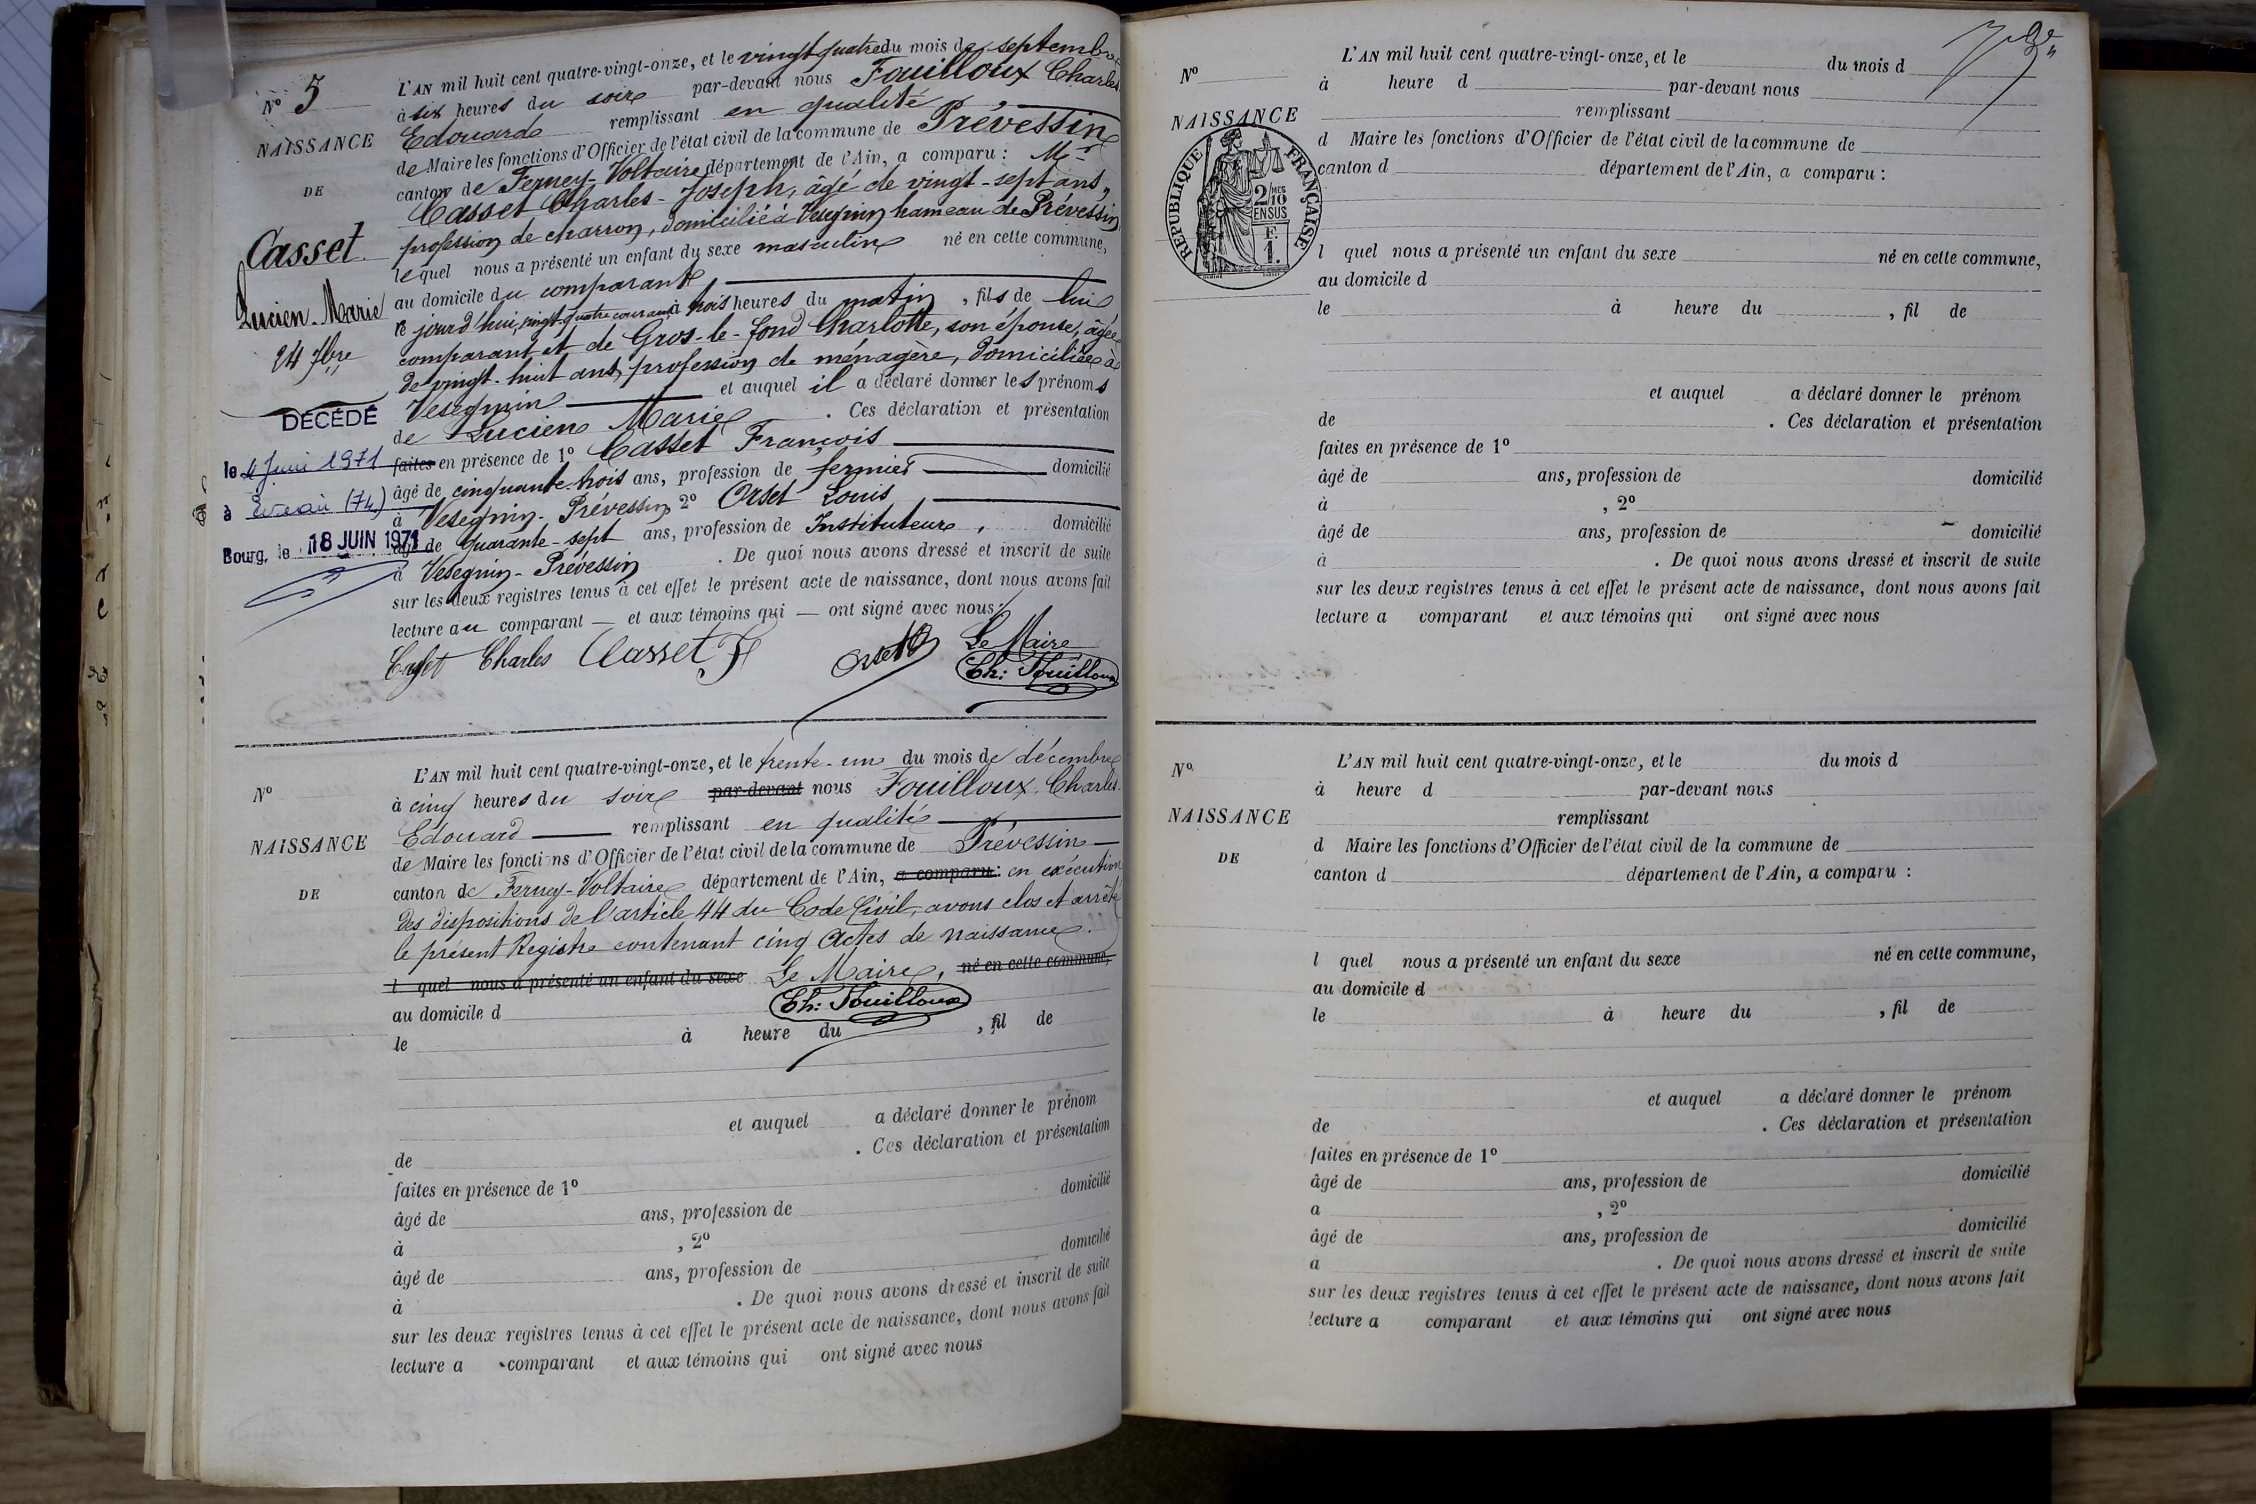 N° 5
NAISSANCE
DE
Casset
Lucien-Marie
24 7bre
DÉCÉDÉ
le 4 Juin 1971
à (74)
Bourg, le 18 JUIN 1971
L'AN mil huit cent quatre-vingt-onze, et le vingt quatre du mois de septembre
à six heures du soir par-devant nous Fouilloux Charles
Edouard remplissant en qualité
de Maire les fonctions d'Officier de l'état civil de la commune de Prévessin
canton de Ferney-Voltaire département de l'Ain, a comparu : Mr
Casset Charles-Joseph, âgé de vingt-sept ans,
profession de charron, domicilié à Vesegnin hameau de Prévessin
lequel nous a présenté un enfant du sexe masculin né en cette commune,
au domicile du comparant
ce jourd'hui, vingt-quatre courant à trois heures du matin, fils de lui
comparant et de Gros-le-fond Charlotte, son épouse, âgée
de vingt-huit ans, profession de ménagère, domiciliée à
Vesegnin et auquel il a déclaré donner les prénoms
de Lucien Marie. Ces déclaration et présentation
faites en présence de 1° Casset François
âgé de cinquante-trois ans, profession de fermier domicilié
à Vesegnin-Prévessin 2° Orset Louis,
âgé de quarante-sept ans, profession de Instituteur, domicilié
à Vesegnin-Prévessin. De quoi nous avons dressé et inscrit de suite
sur les deux registres tenus à cet effet le présent acte de naissance, dont nous avons fait
lecture au comparant — et aux témoins qui — ont signé avec nous.
Casset Charles Casset F Orset Le Maire
Ch: Fouilloux
N°
NAISSANCE
DE
L'AN mil huit cent quatre-vingt-onze, et le trente-un du mois de décembre
à cinq heures du soir par-devant nous Fouilloux Charles
Edouard remplissant en qualité
de Maire les fonctions d'Officier de l'état civil de la commune de Prévessin
canton de Ferney-Voltaire département de l'Ain, a comparu : en exécution
des dispositions de l'article 44 du Code Civil, avons clos et arrêté
le présent Registre contenant cinq Actes de naissance.
l quel nous a présenté un enfant du sexe Le Maire, né en cette commune,
au domicile d Ch: Fouilloux
le à heure du , fil de
et auquel a déclaré donner le prénom
de . Ces déclaration et présentation
faites en présence de 1°
âgé de ans, profession de domicilié
à , 2°
âgé de ans, profession de domicilié
à . De quoi nous avons dressé et inscrit de suite
sur les deux registres tenus à cet effet le présent acte de naissance, dont nous avons fait
lecture a comparant et aux témoins qui ont signé avec nous
N°
NAISSANCE
RÉPUBLIQUE FRANÇAISE
2/10 MES
EN SUS
F.
1.
L'AN mil huit cent quatre-vingt-onze, et le du mois d
à heure d par-devant nous
remplissant
d Maire les fonctions d'Officier de l'état civil de la commune de
canton d département de l'Ain, a comparu :
l quel nous a présenté un enfant du sexe né en cette commune,
au domicile d
le à heure du , fil de
et auquel a déclaré donner le prénom
de . Ces déclaration et présentation
faites en présence de 1°
âgé de ans, profession de domicilié
à , 2°
âgé de ans, profession de domicilié
à . De quoi nous avons dressé et inscrit de suite
sur les deux registres tenus à cet effet le présent acte de naissance, dont nous avons fait
lecture a comparant et aux témoins qui ont signé avec nous
N°
NAISSANCE
DE
L'AN mil huit cent quatre-vingt-onze, et le du mois d
à heure d par-devant nous
remplissant
d Maire les fonctions d'Officier de l'état civil de la commune de
canton d département de l'Ain, a comparu :
l quel nous a présenté un enfant du sexe né en cette commune,
au domicile d
le à heure du , fil de
et auquel a déclaré donner le prénom
de . Ces déclaration et présentation
faites en présence de 1°
âgé de ans, profession de domicilié
a , 2°
âgé de ans, profession de domicilié
a . De quoi nous avons dressé et inscrit de suite
sur les deux registres tenus à cet effet le présent acte de naissance, dont nous avons fait
lecture a comparant et aux témoins qui ont signé avec nous